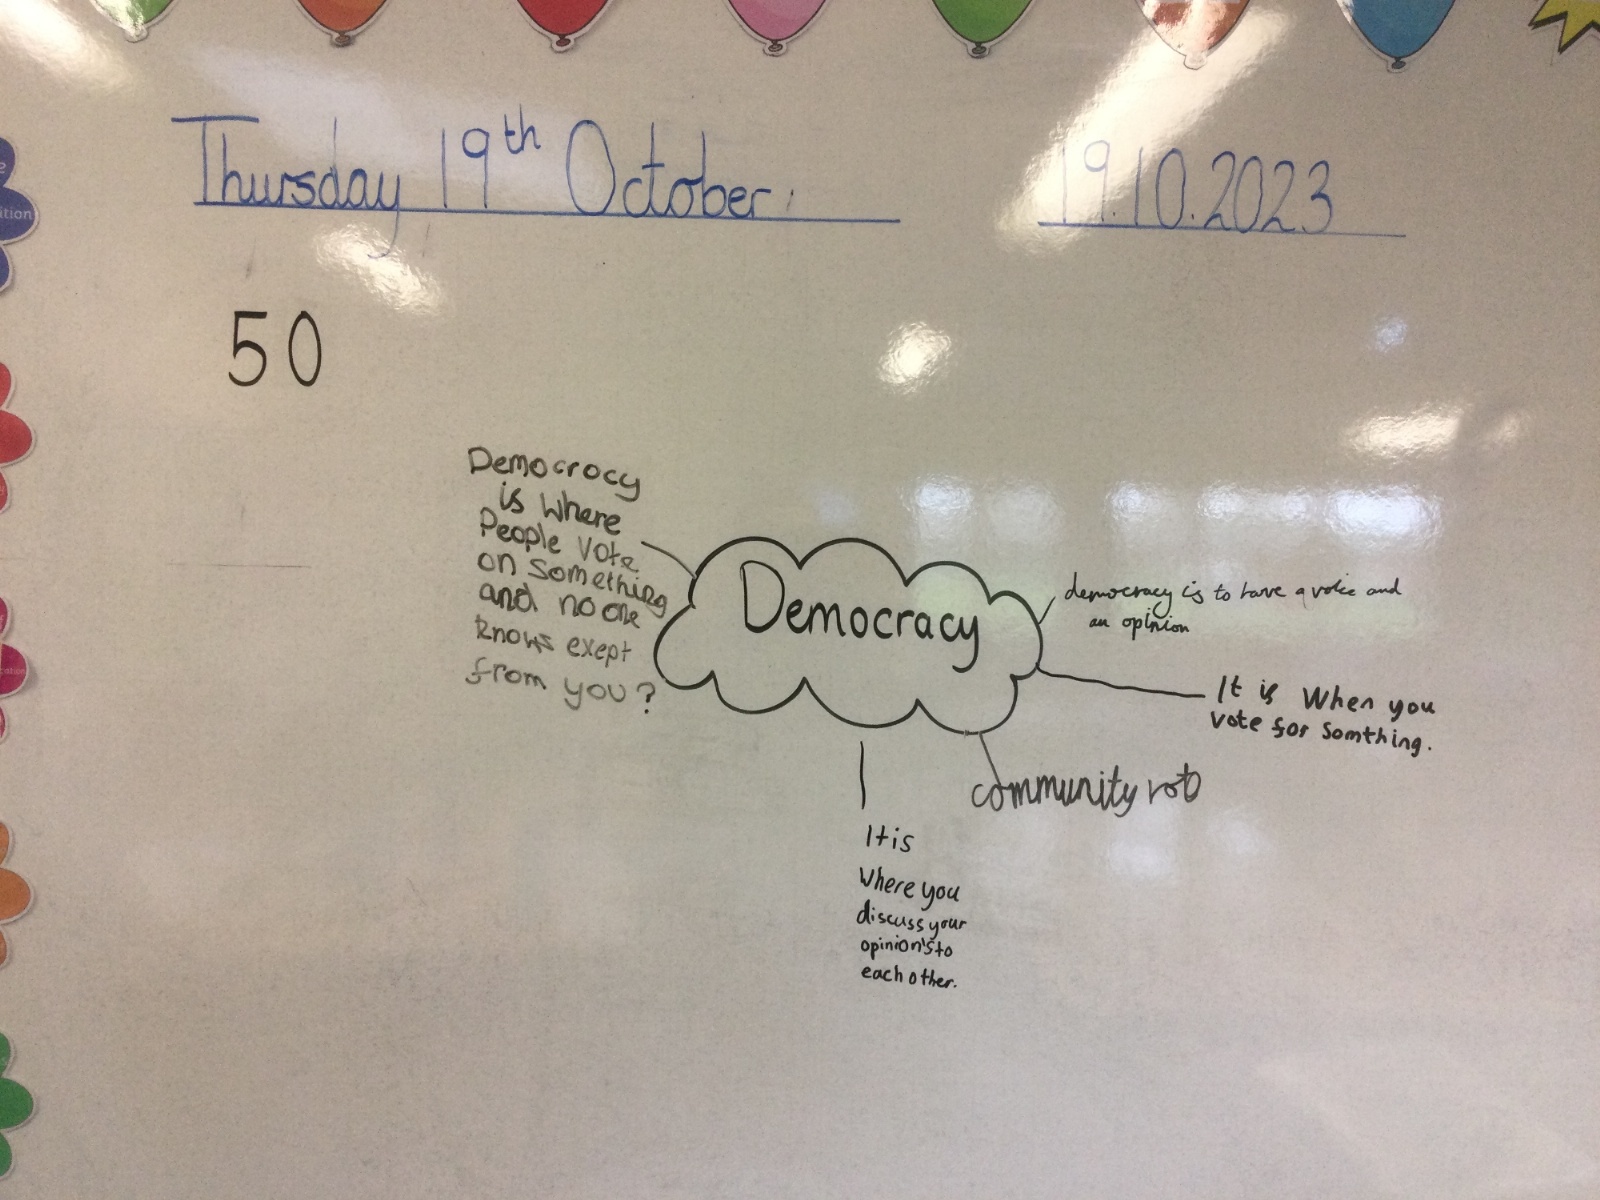 Thursday 19th October
19.10.2023
50
Democrocy
is where
People vote
on something
and no one
knows exept
from you?
Democracy
democracy is to have a voice and
an opinion
It is When you
vote for somthing.
community vote
It is
Where you
discuss your
opinion's to
each other.
ition